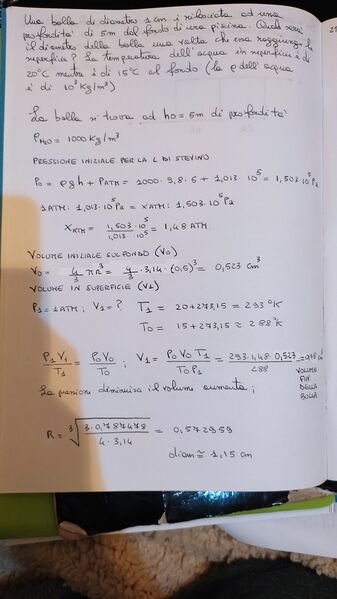 Una bolla di diametro 1 cm è rilasciata ad una
profondità di 5m dal fondo di una piscina. Quale sarà
il diametro della bolla una volta che essa raggiunge la
superficie? La temperatura dell'acqua in superficie è di
20°C mentre è di 15°C al fondo (la ρ dell'acqua
è di 10³ Kg/m³)
La bolla si trova ad h0 = 5m di profondità
ρH2O = 1000 Kg/m³
PRESSIONE INIZIALE PER LA L DI STEVINO
P0 = ρgh + PATM = 1000·9,8·5 + 1,013·10⁵ = 1,503·10⁵ Pa
1ATM : 1,013·10⁵Pa = XATM : 1,503·10⁵Pa
XATM = 1,503·10⁵ / 1,013·10⁵ = 1,48 ATM
VOLUME INIZIALE SUL FONDO (V0)
V0 = 4/3 πR³ = 4/3 · 3,14 · (0,5)³ = 0,523 cm³
VOLUME IN SUPERFICIE (V1)
P1 = 1ATM ; V1 = ? T1 = 20+273,15 = 293 °K
T0 = 15+273,15 ≃ 288 °K
P1V1/T1 = P0V0/T0 ; V1 = P0V0T1/T0P1 = 293·1,48·0,523/288
VOLUME
FIN
DELLA
BOLLA
La pressione diminuisce il volume aumenta ;
R = ³√(3·0,787478 / 4·3,14) = 0,572959
diam ≅ 1,15 cm